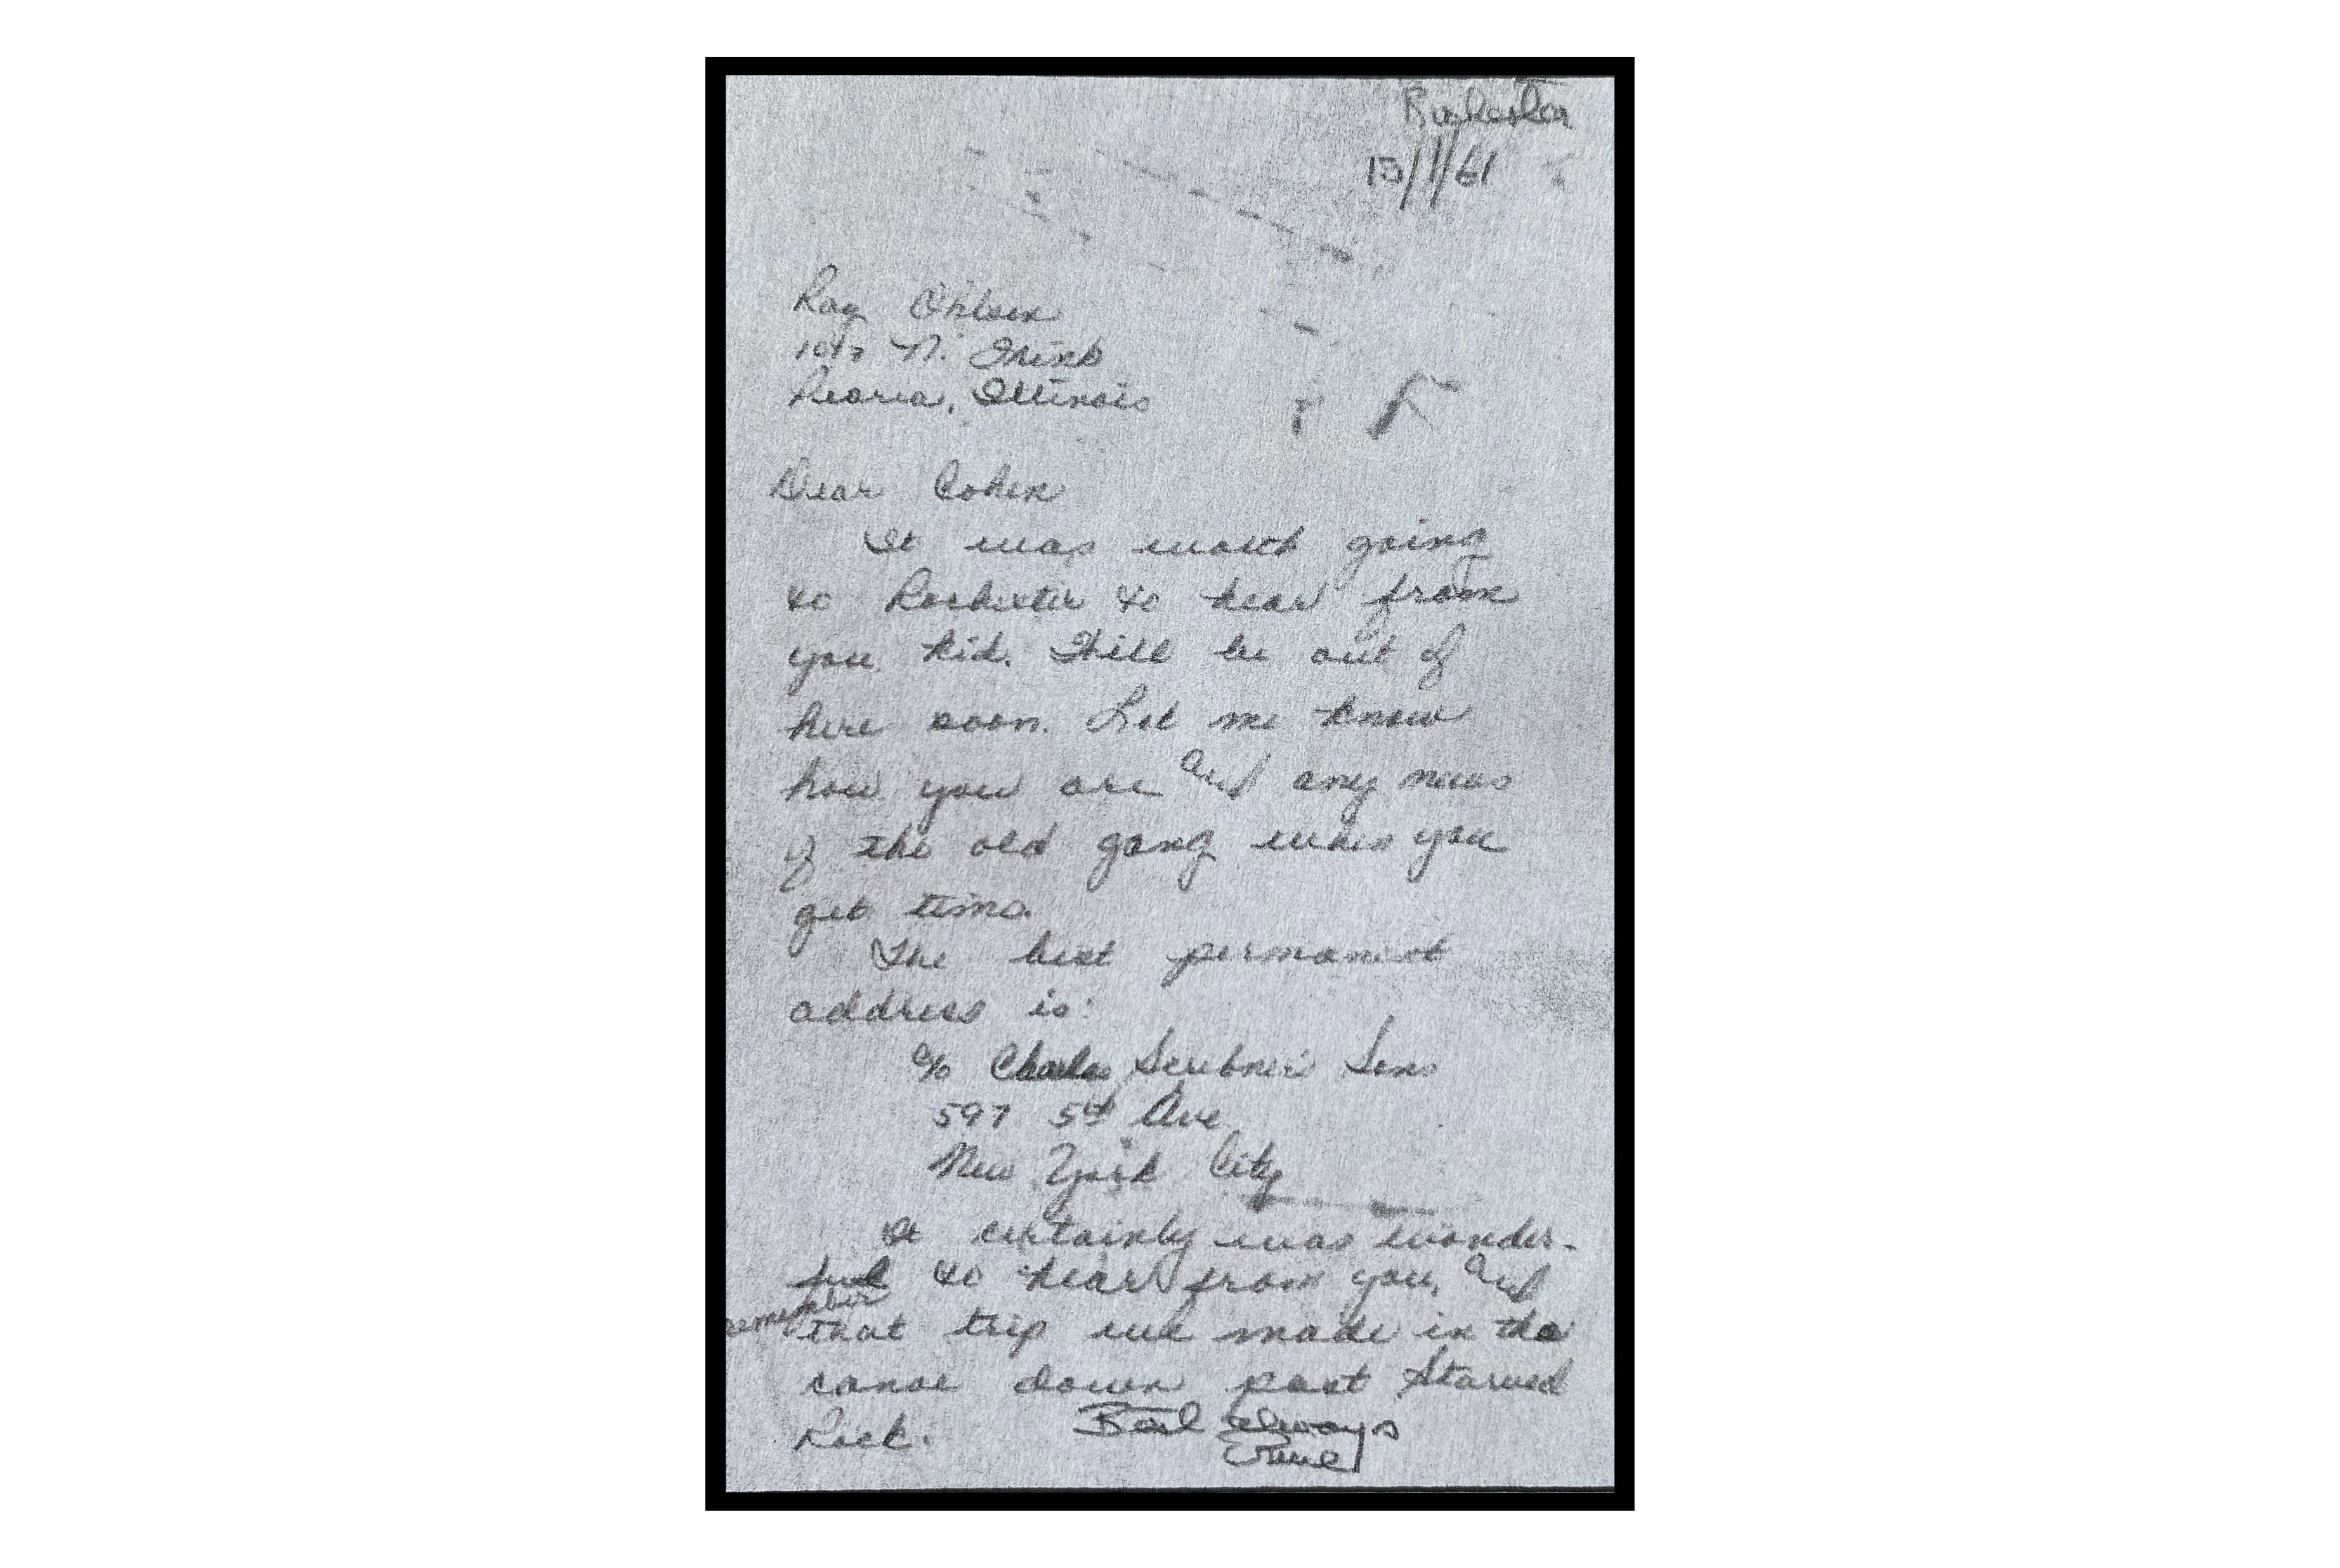 Rochester
15/1/61
Ray Ohlsen
N.
Peoria, Illinois
Dear Cohen
It was worth going
to Rochester to hear from
you kid. Will be out of
here soon. Let me know
how you are and any news
of the old gang when you
get time.
The best permanent
address is:
c/o Charles Scribner's Sons
597 5th Ave
New York City
It certainly was wonder-
ful to hear from you, and
remember
that trip we made in the
canoe down past Starved
Rock.
Best always
Ernie